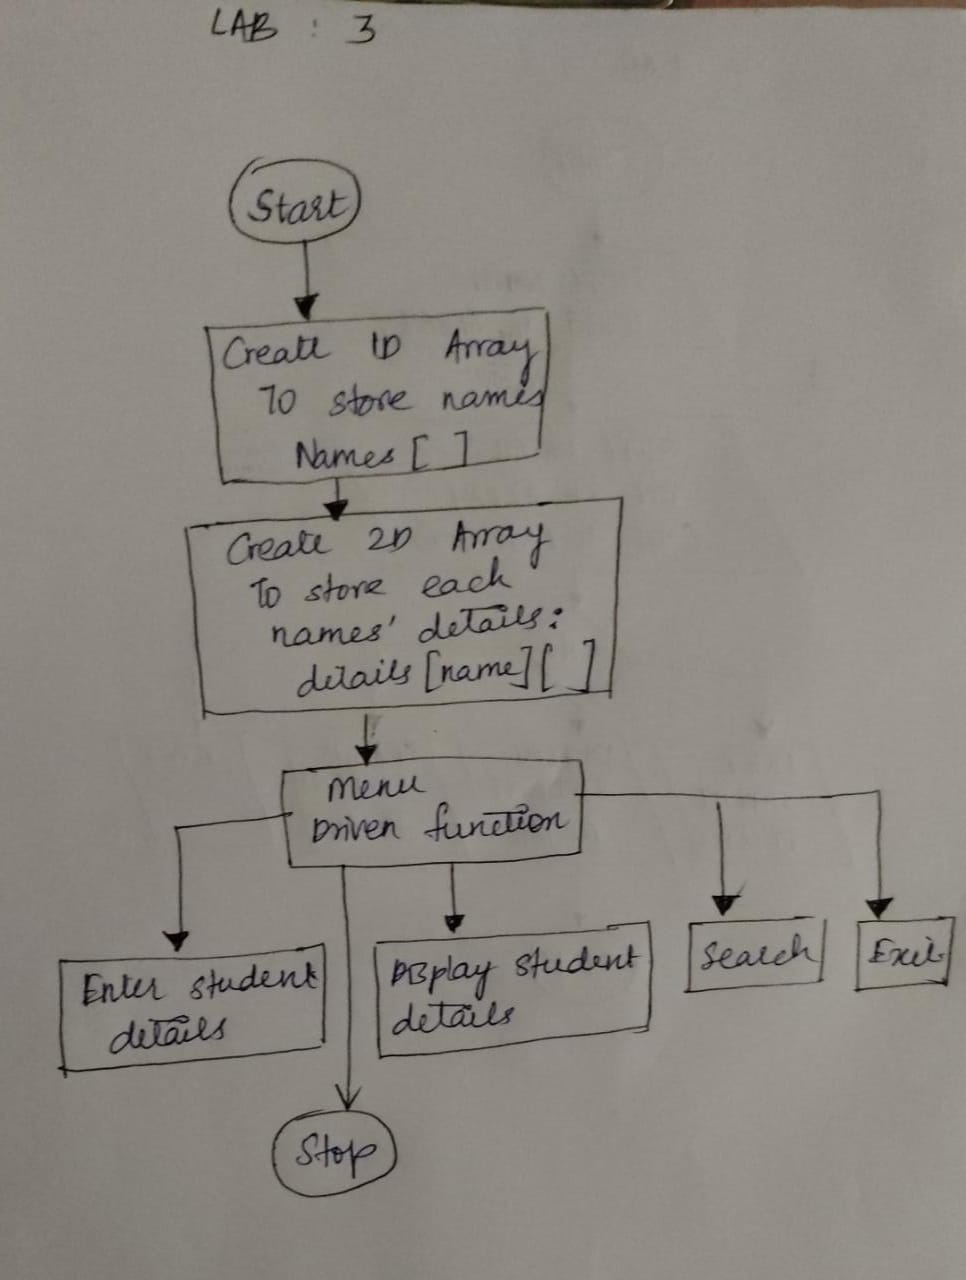 LAB : 3
Start
Create 1D Array
To store names
Names [ ]
Create 2D Array
To store each
names' details:
details [name][ ]
Menu
Driven function
Enter student
details
Display student
details
Search
Exit
Stop